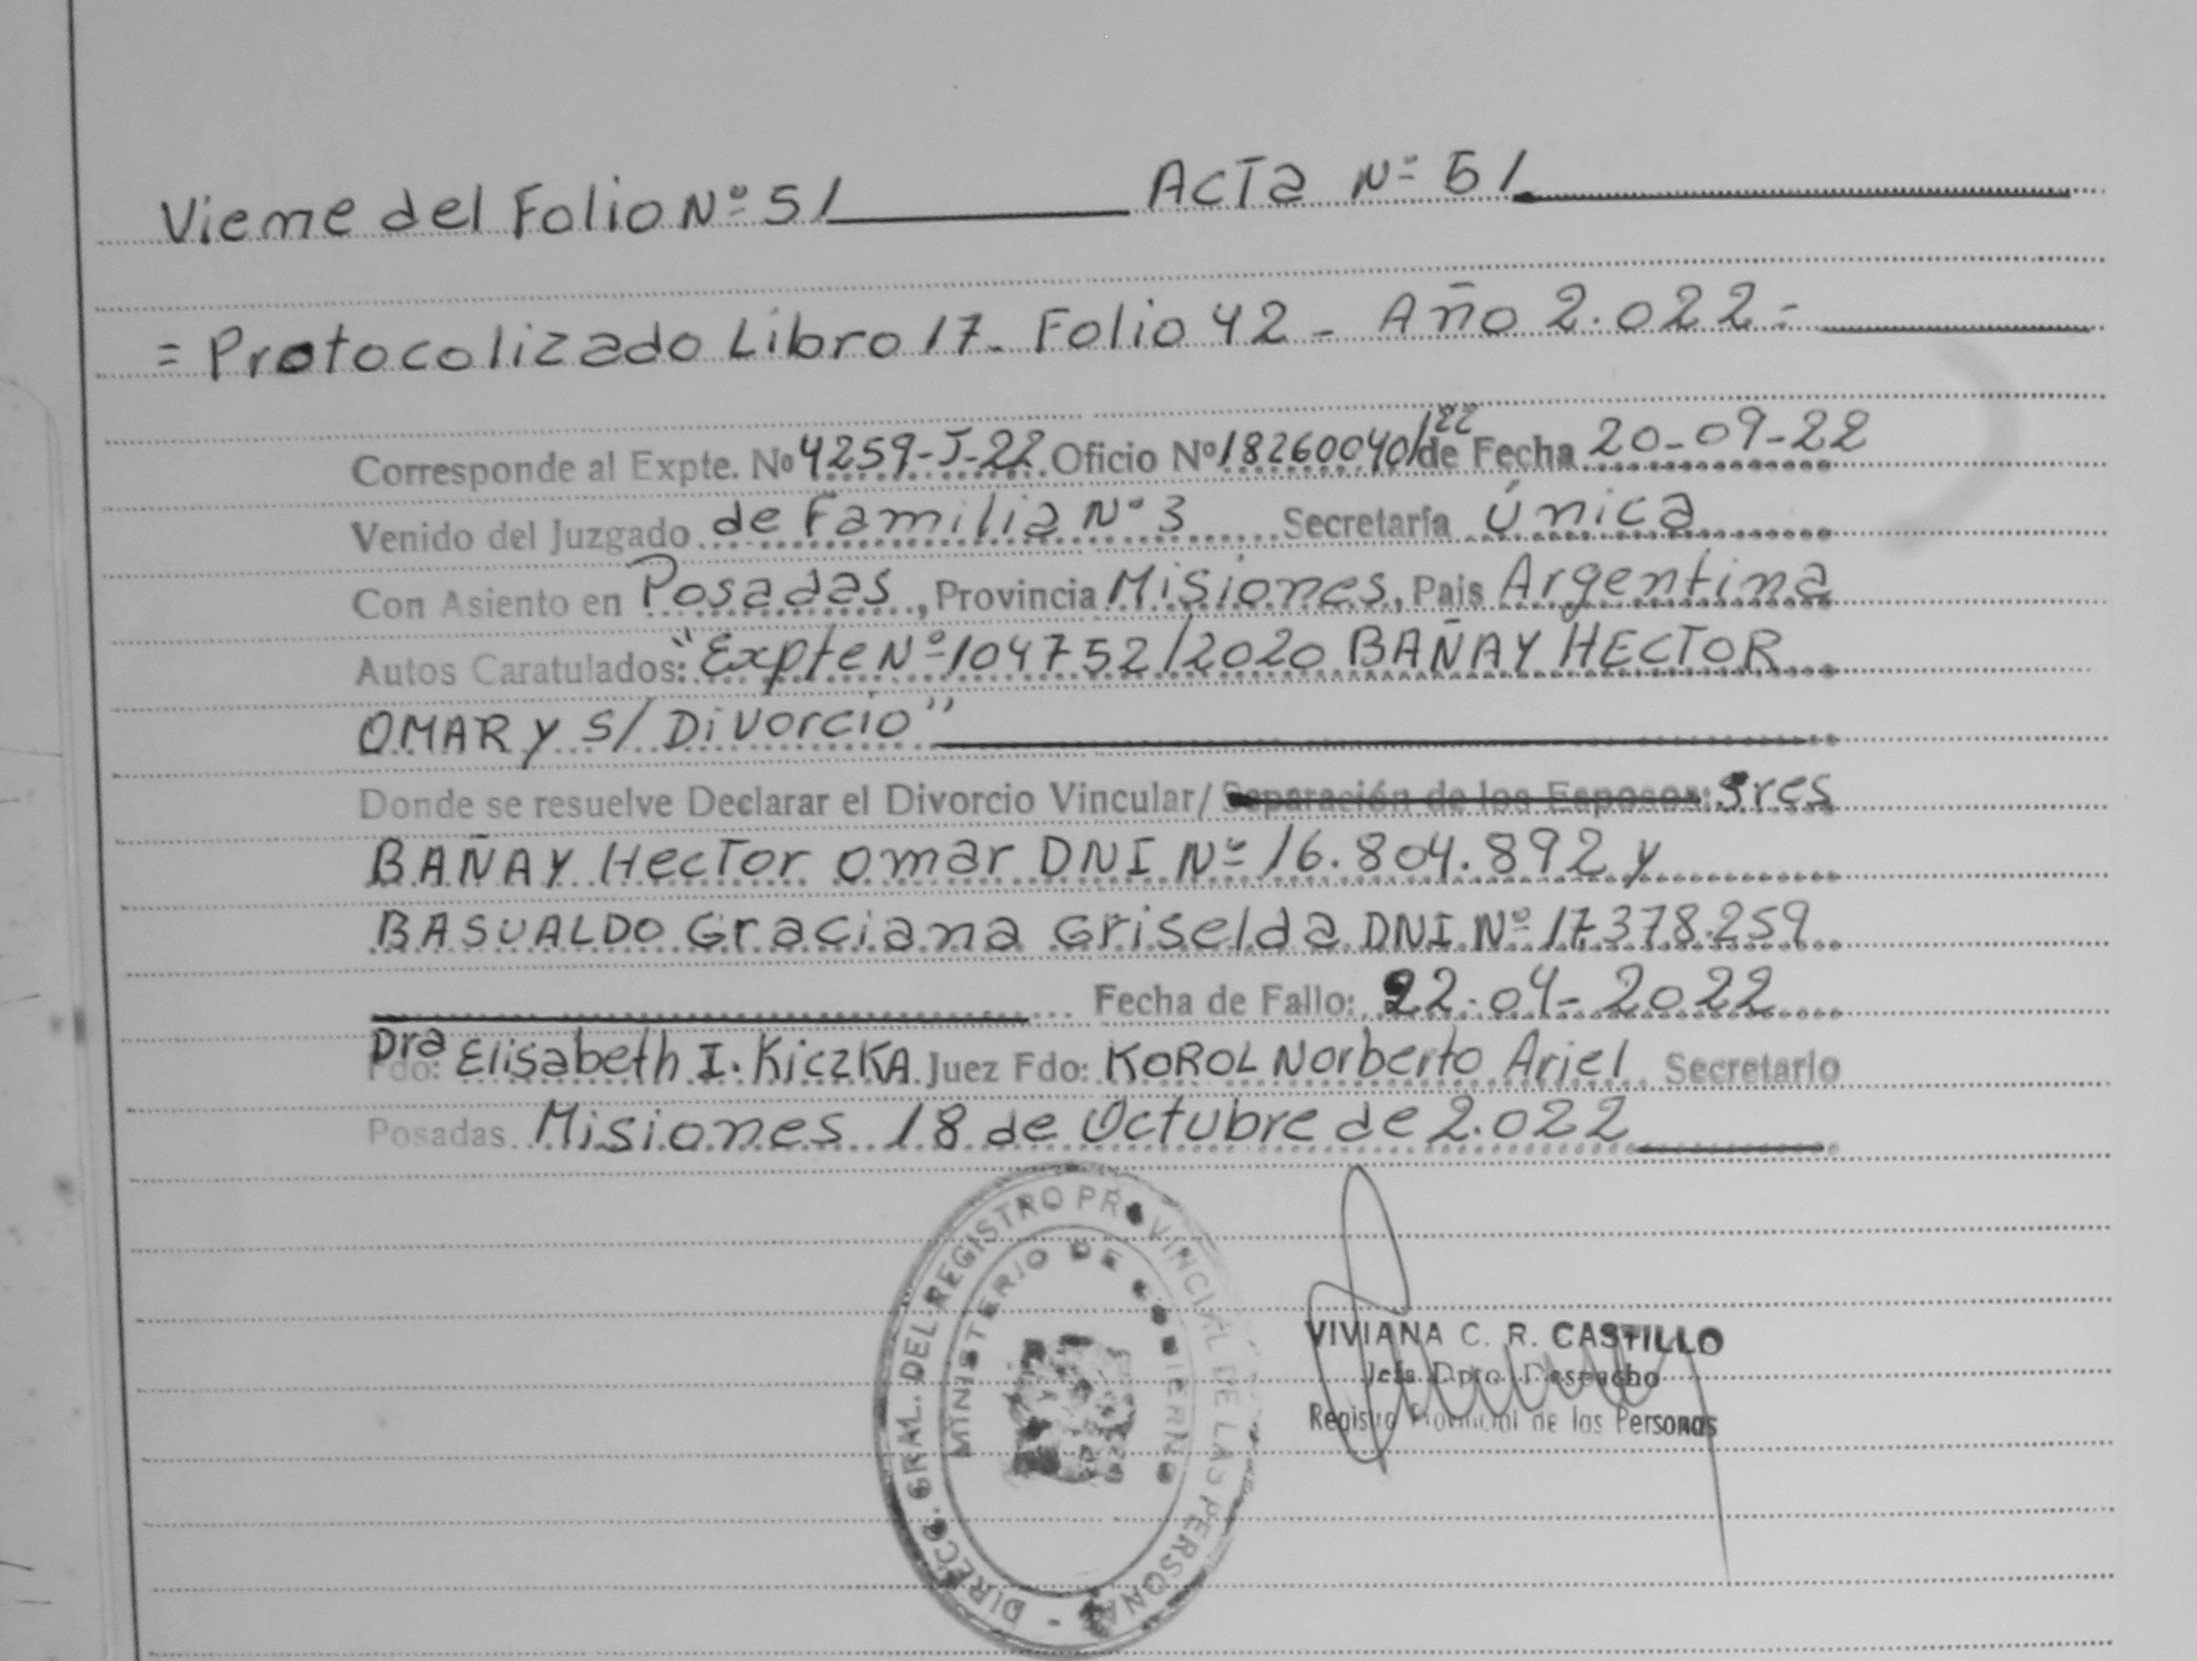 Viene del Folio Nº 51 Acta Nº 51
= Protocolizado Libro 17. Folio 42 - Año 2.022 =
Corresponde al Expte. Nº 4259-J-22 Oficio Nº 18260040/22 de Fecha 20-09-22
Venido del Juzgado de Familia Nº 3 Secretaría Única
Con Asiento en Posadas, Provincia Misiones, Pais Argentina
Autos Caratulados: "Expte Nº 104752/2020 BAÑAY HECTOR
OMAR y S/ Divorcio"
Donde se resuelve Declarar el Divorcio Vincular/ Separación de los Esposos: Sres
BAÑAY Hector Omar DNI Nº 16.804.892 y
BASUALDO Graciana Griselda DNI Nº 17.378.259
Fecha de Fallo: 22-04-2022
Dra
Fdo: Elisabeth I. KiczKA Juez Fdo: KOROL Norberto Ariel Secretario
Posadas Misiones 18 de Octubre de 2.022
DIRECC. GRAL. DEL REGISTRO PROVINCIAL DE LAS PERSONAS -
MINISTERIO DE GOBIERNO
VIVIANA C. R. CASTILLO
Jefa Dpto. Despacho
Registro Provincial de las Personas